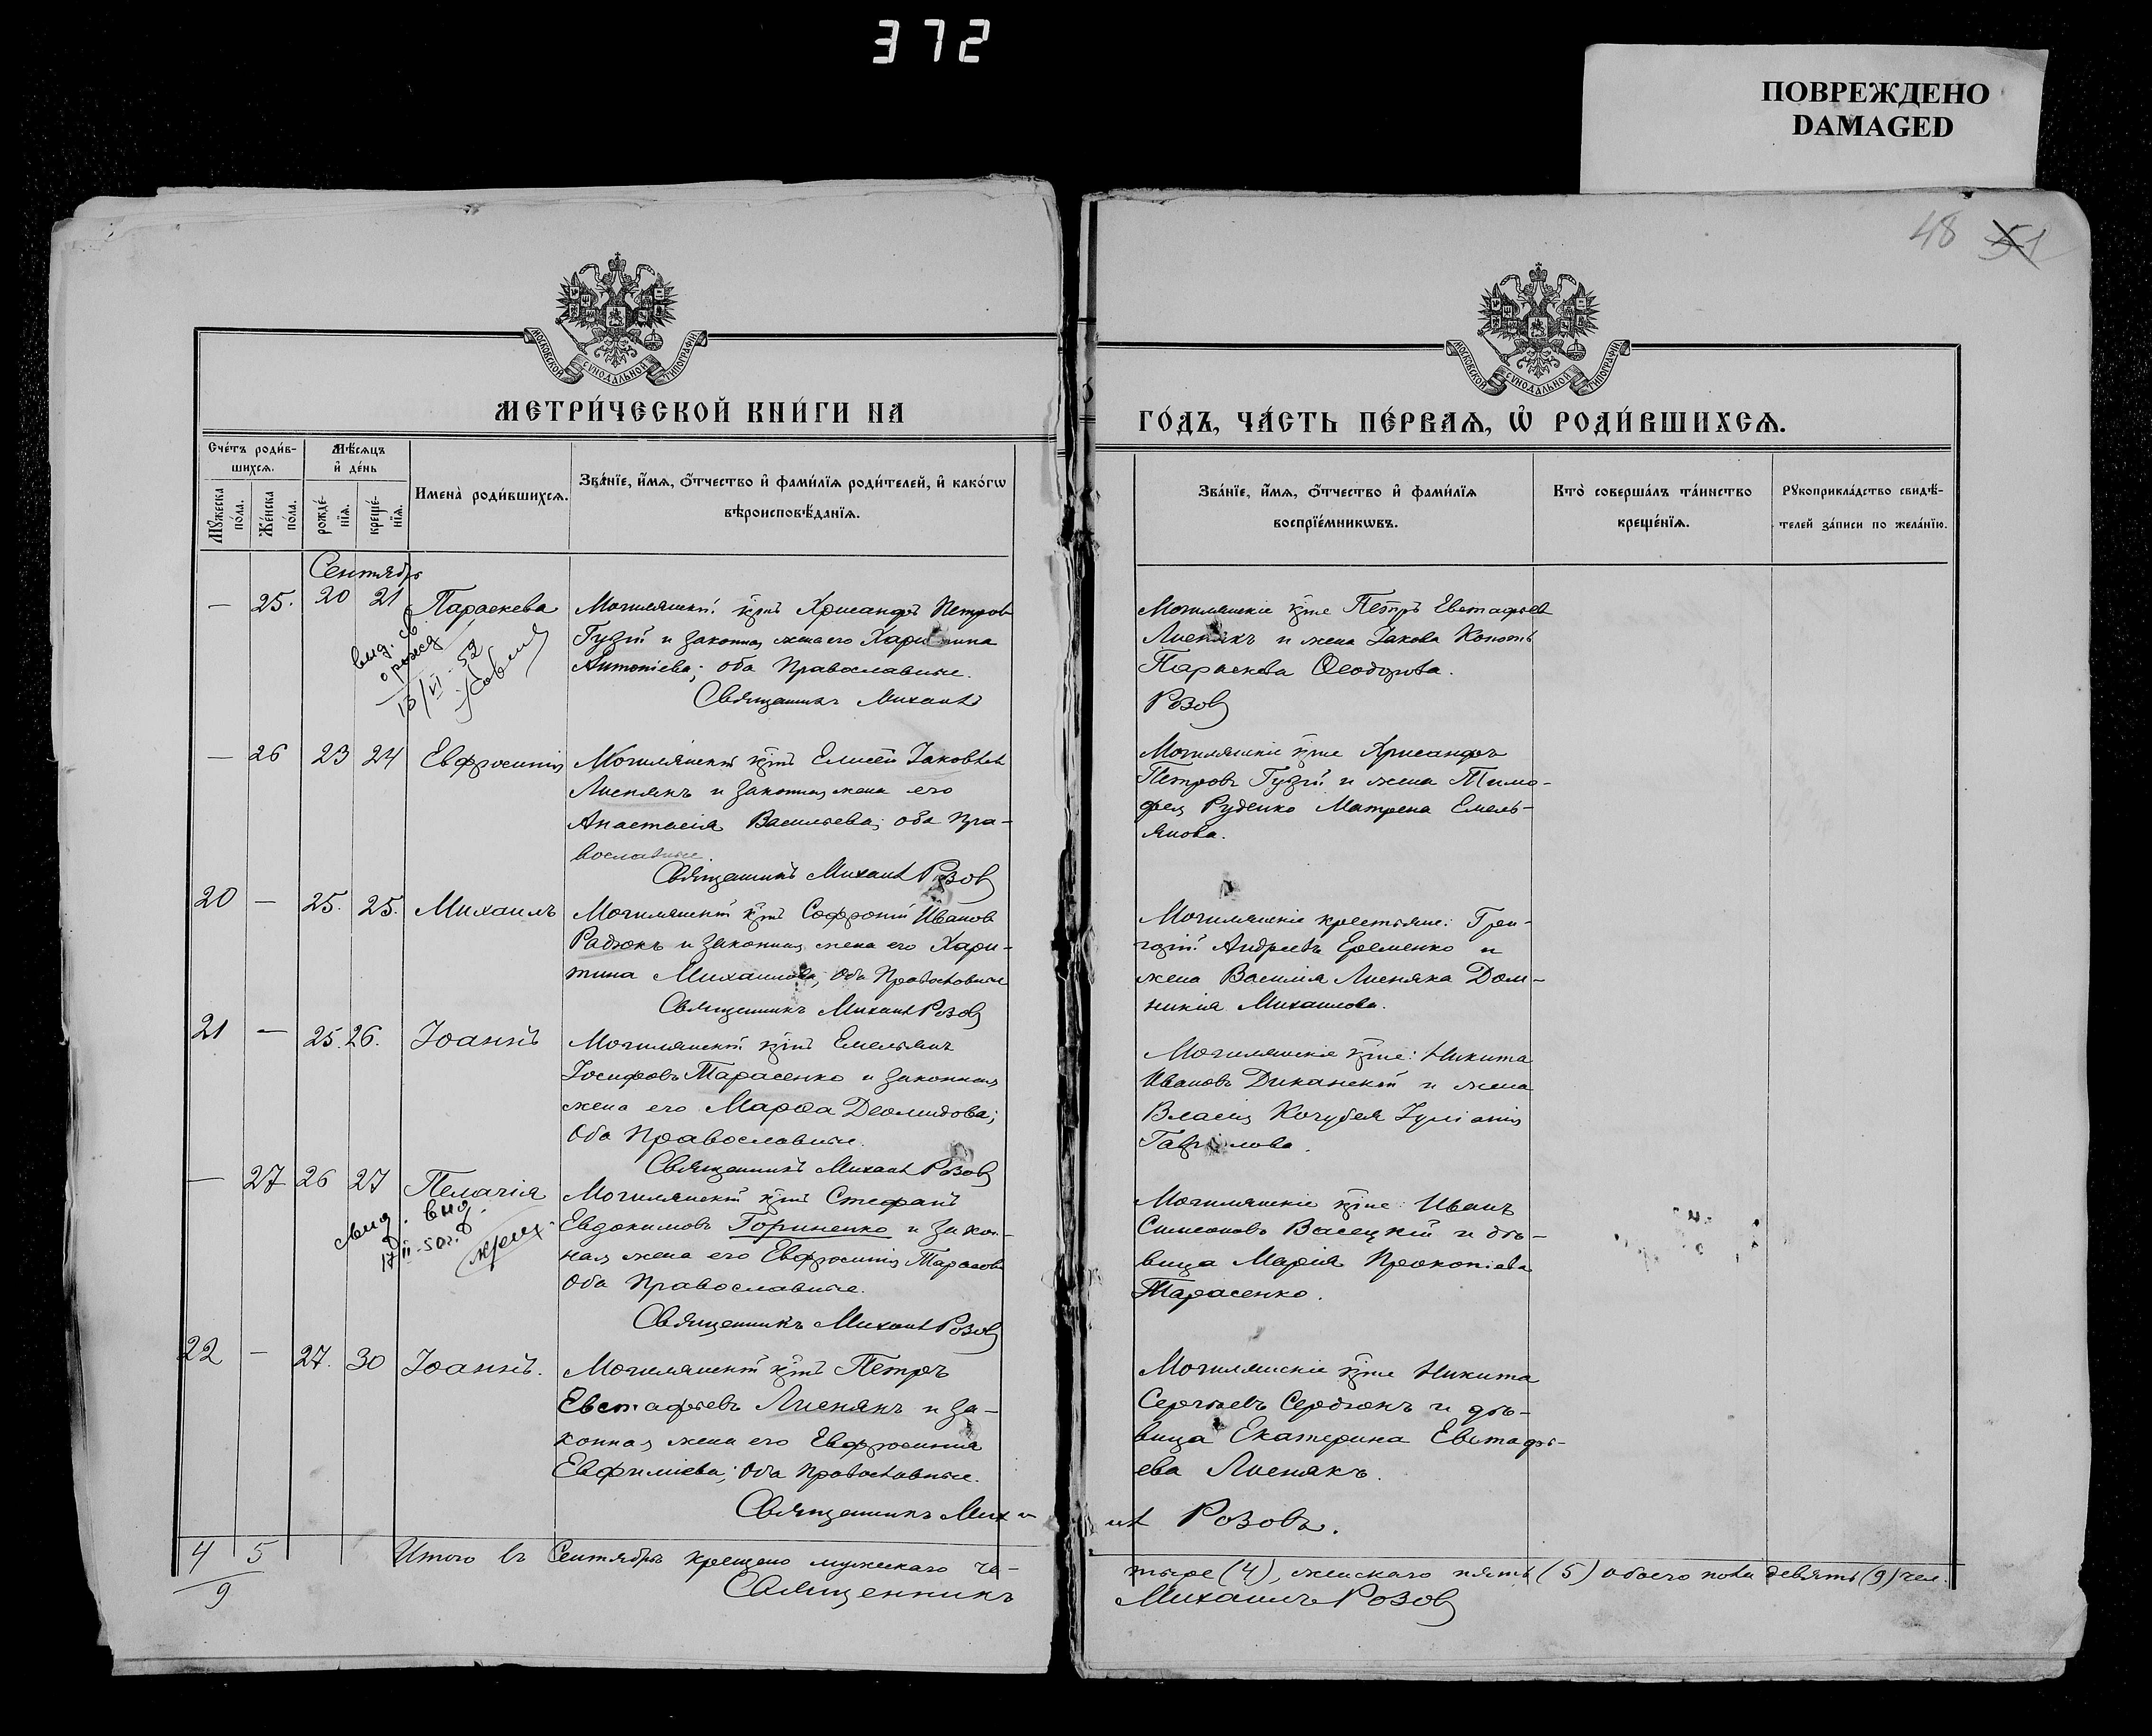 372
ПОВРЕЖДЕНО
DAMAGED
48 51
МОСКОВСКОЙ СУНОДАЛЬНОЙ ТИПОГРАФИИ
МОСКОВСКОЙ СУНОДАЛЬНОЙ ТИПОГРАФИИ
МЕТРИ́ЧЕСКОЙ КНИ́ГИ НА
ГО́ДЪ, ЧА́СТЬ ПЕ́РВАѦ, Ѡ҆ РОДИ́ВШИХСѦ.
Сче́тъ роди́в-
шихсѧ.
Мѣ́сѧцъ
и҆ де́нь
Мꙋ́жеска
по́ла.
Же́нска
пола.
рожде́-
нїѧ.
креще́-
нїѧ.
Имена̀ роди́вшихсѧ.
Зва́нїе, и҆́мѧ, ѻ҆́тчество и҆ фами́лїѧ роди́телей, и҆ како́гѡ
вѣроисповѣ́данїѧ.
Зва́нїе, и҆́мѧ, ѻ҆́тчество и҆ фами́лїѧ
воспрїе́мникѡвъ.
Кто̀ соверша́лъ та́инство
креще́нїѧ.
Рꙋкоприкла́дство свидѣ́-
телей за́писи по жела́нїю.
Сентябрь
— 25. 20 21 Параскева
выд. св.
о рожд
13/VI 52
Могилянскій крнъ Хрисанфъ Петровъ
Гузій и законная жена его Харитина
Антоніева; оба Православные.
Священникъ Михаилъ
Могилянскіе крне Петръ Евстафіевъ
Лиснякъ и жена Іакова Кононъ
Параскева Ѳеодорова.
Розовъ
— 26 23 24 Евфросинія
Могилянскій крнъ Елисей Іаковлевъ
Лиснякъ и законная жена его
Анастасія Васильева; оба пра-
вославные.
Священникъ Михаилъ Розовъ
Могилянскіе крне Хрисанфъ
Петровъ Гузій и жена Тимо-
фея Руденко Матрена Емель-
янова.
20 — 25. 25. Михаилъ
Могилянскій крнъ Софроній Ивановъ
Радюкъ и законная жена его Хари-
тина Михаилова; Оба Православные
Священникъ Михаилъ Розовъ
Могилянскіе крестьяне: Гри-
горій Андреевъ Еременко и
жена Василія Лисняка Дом-
никія Михаилова.
21 — 25. 26. Іоаннъ
Могилянскій крнъ Емельянъ
Іосифовъ Тарасенко и законная
жена его Марѳа Деомидова;
Оба Православные.
Священникъ Михаилъ Розовъ
Могилянскіе крне: Никита
Ивановъ Диканскій и жена
Власія Кочубея Іуліанія
Гавріилова.
— 27 26 27 Пелагія
выд.
17/II-50г.
Могилянскій крнъ Стефанъ
Евдокимовъ Гориненко и закон-
ная жена его Евфросинія Тарасова
Оба Православные.
Священникъ Михаилъ Розовъ
Могилянскіе крне: Иванъ
Симеоновъ Васецкій и дѣ-
вица Марія Прокопіева
Тарасенко.
22 — 27. 30 Іоаннъ.
Могилянскій крнъ Петръ
Евстафіевъ Лиснякъ и за-
конная жена его Евфросинія
Евфиміева; Оба Православные.
Священникъ Миха-
Могилянскіе крне Никита
Сергѣевъ Сердюкъ и дѣ-
вица Екатерина Евстафі-
ева Лиснякъ.
илъ Розовъ.
4 5
9
Итого въ Сентябрѣ крещено мужескаго че-
тыре (4), женскаго пять (5) обоего пола девять (9) чел.
Священникъ
Михаилъ Розовъ